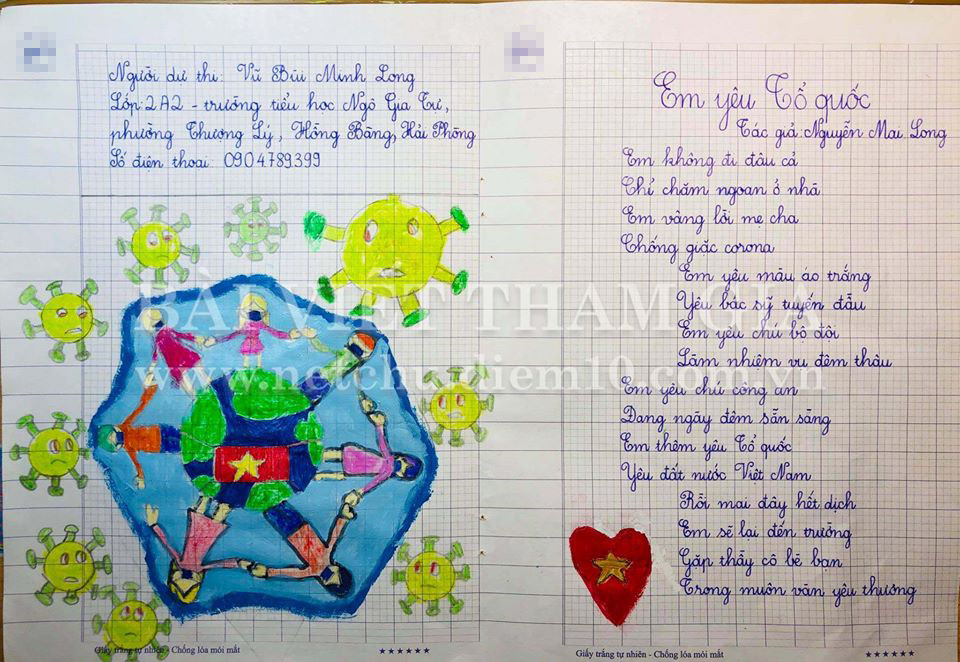 Người dự thi: Vũ Bùi Minh Long
Lớp: 2A2 - trường tiểu học Ngô Gia Tự,
phường Thượng Lý, Hồng Bàng, Hải Phòng
Số điện thoại: 0904789399
Em yêu Tổ quốc
Tác giả: Nguyễn Mai Long
Em không đi đâu cả
Chỉ chăm ngoan ở nhà
Em vâng lời mẹ cha
Chống giặc corona
Em yêu màu áo trắng
Yêu bác sỹ tuyến đầu
Em yêu chú bộ đội
Làm nhiệm vụ đêm thâu
Em yêu chú công an
Đang ngày đêm sẵn sàng
Em thêm yêu Tổ quốc
Yêu đất nước Việt Nam
Rồi mai đây hết dịch
Em sẽ lại đến trường
Gặp thầy cô bè bạn
Trong muôn vàn yêu thương
BÀI VIẾT THAM GIA
www.netchudiem10.com.vn
Giấy trắng tự nhiên - Chống lóa mỏi mắt
Giấy trắng tự nhiên - Chống lóa mỏi mắt